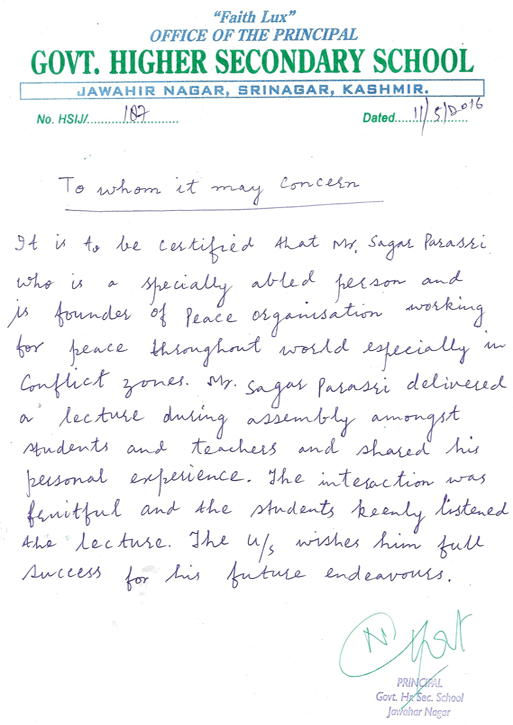 "Faith Lux"
OFFICE OF THE PRINCIPAL
GOVT. HIGHER SECONDARY SCHOOL
JAWAHIR NAGAR, SRINAGAR, KASHMIR.
No. HSIJ/.........107............ Dated.....11/5/2016......
To whom it may concern
It is to be certified that Mr. Sagar Parasri
who is a specially abled person and
is founder of Peace organisation working
for peace throughout world especially in
Conflict zones. Mr. Sagar Parasri delivered
a lecture during assembly amongst
students and teachers and shared his
personal experience. The interaction was
fruitful and the students keenly listened
the lecture. The U/s wishes him full
success for his future endeavours.
PRINCIPAL
Govt. Hr. Sec. School
Jawahar Nagar